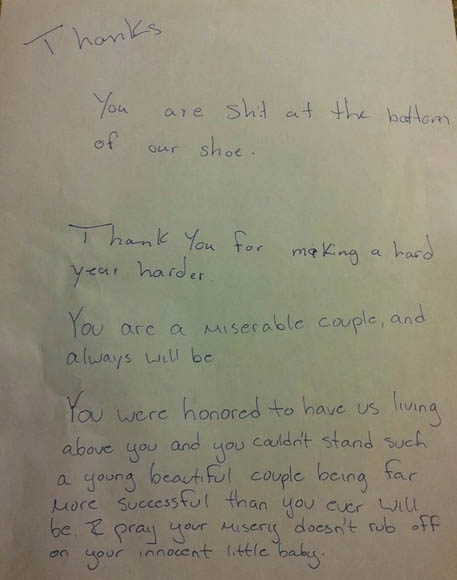 Thanks
You are shit at the bottom
of our shoe.
Thank You for making a hard
year harder.
You are a miserable couple, and
always will be
You were honored to have us living
above you and you couldn't stand such
a young beautiful couple being far
more successful than you ever will
be. I pray your misery doesn't rub off
on your innocent little baby.